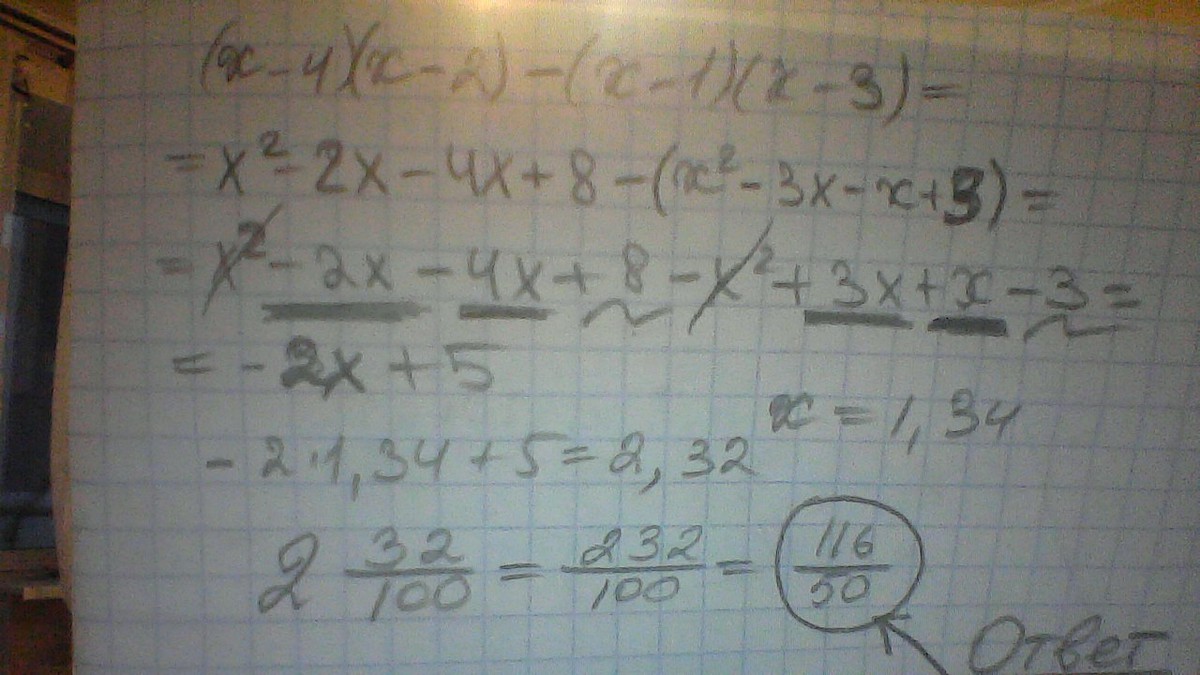 (x-4)(x-2)-(x-1)(x-3)=
=x²-2x-4x+8-(x²-3x-x+3)=
=x²-2x-4x+8-x²+3x+x-3=
=-2x+5
x=1,34
-2·1,34+5=2,32
2 32/100 = 232/100 = 116/50
Ответ